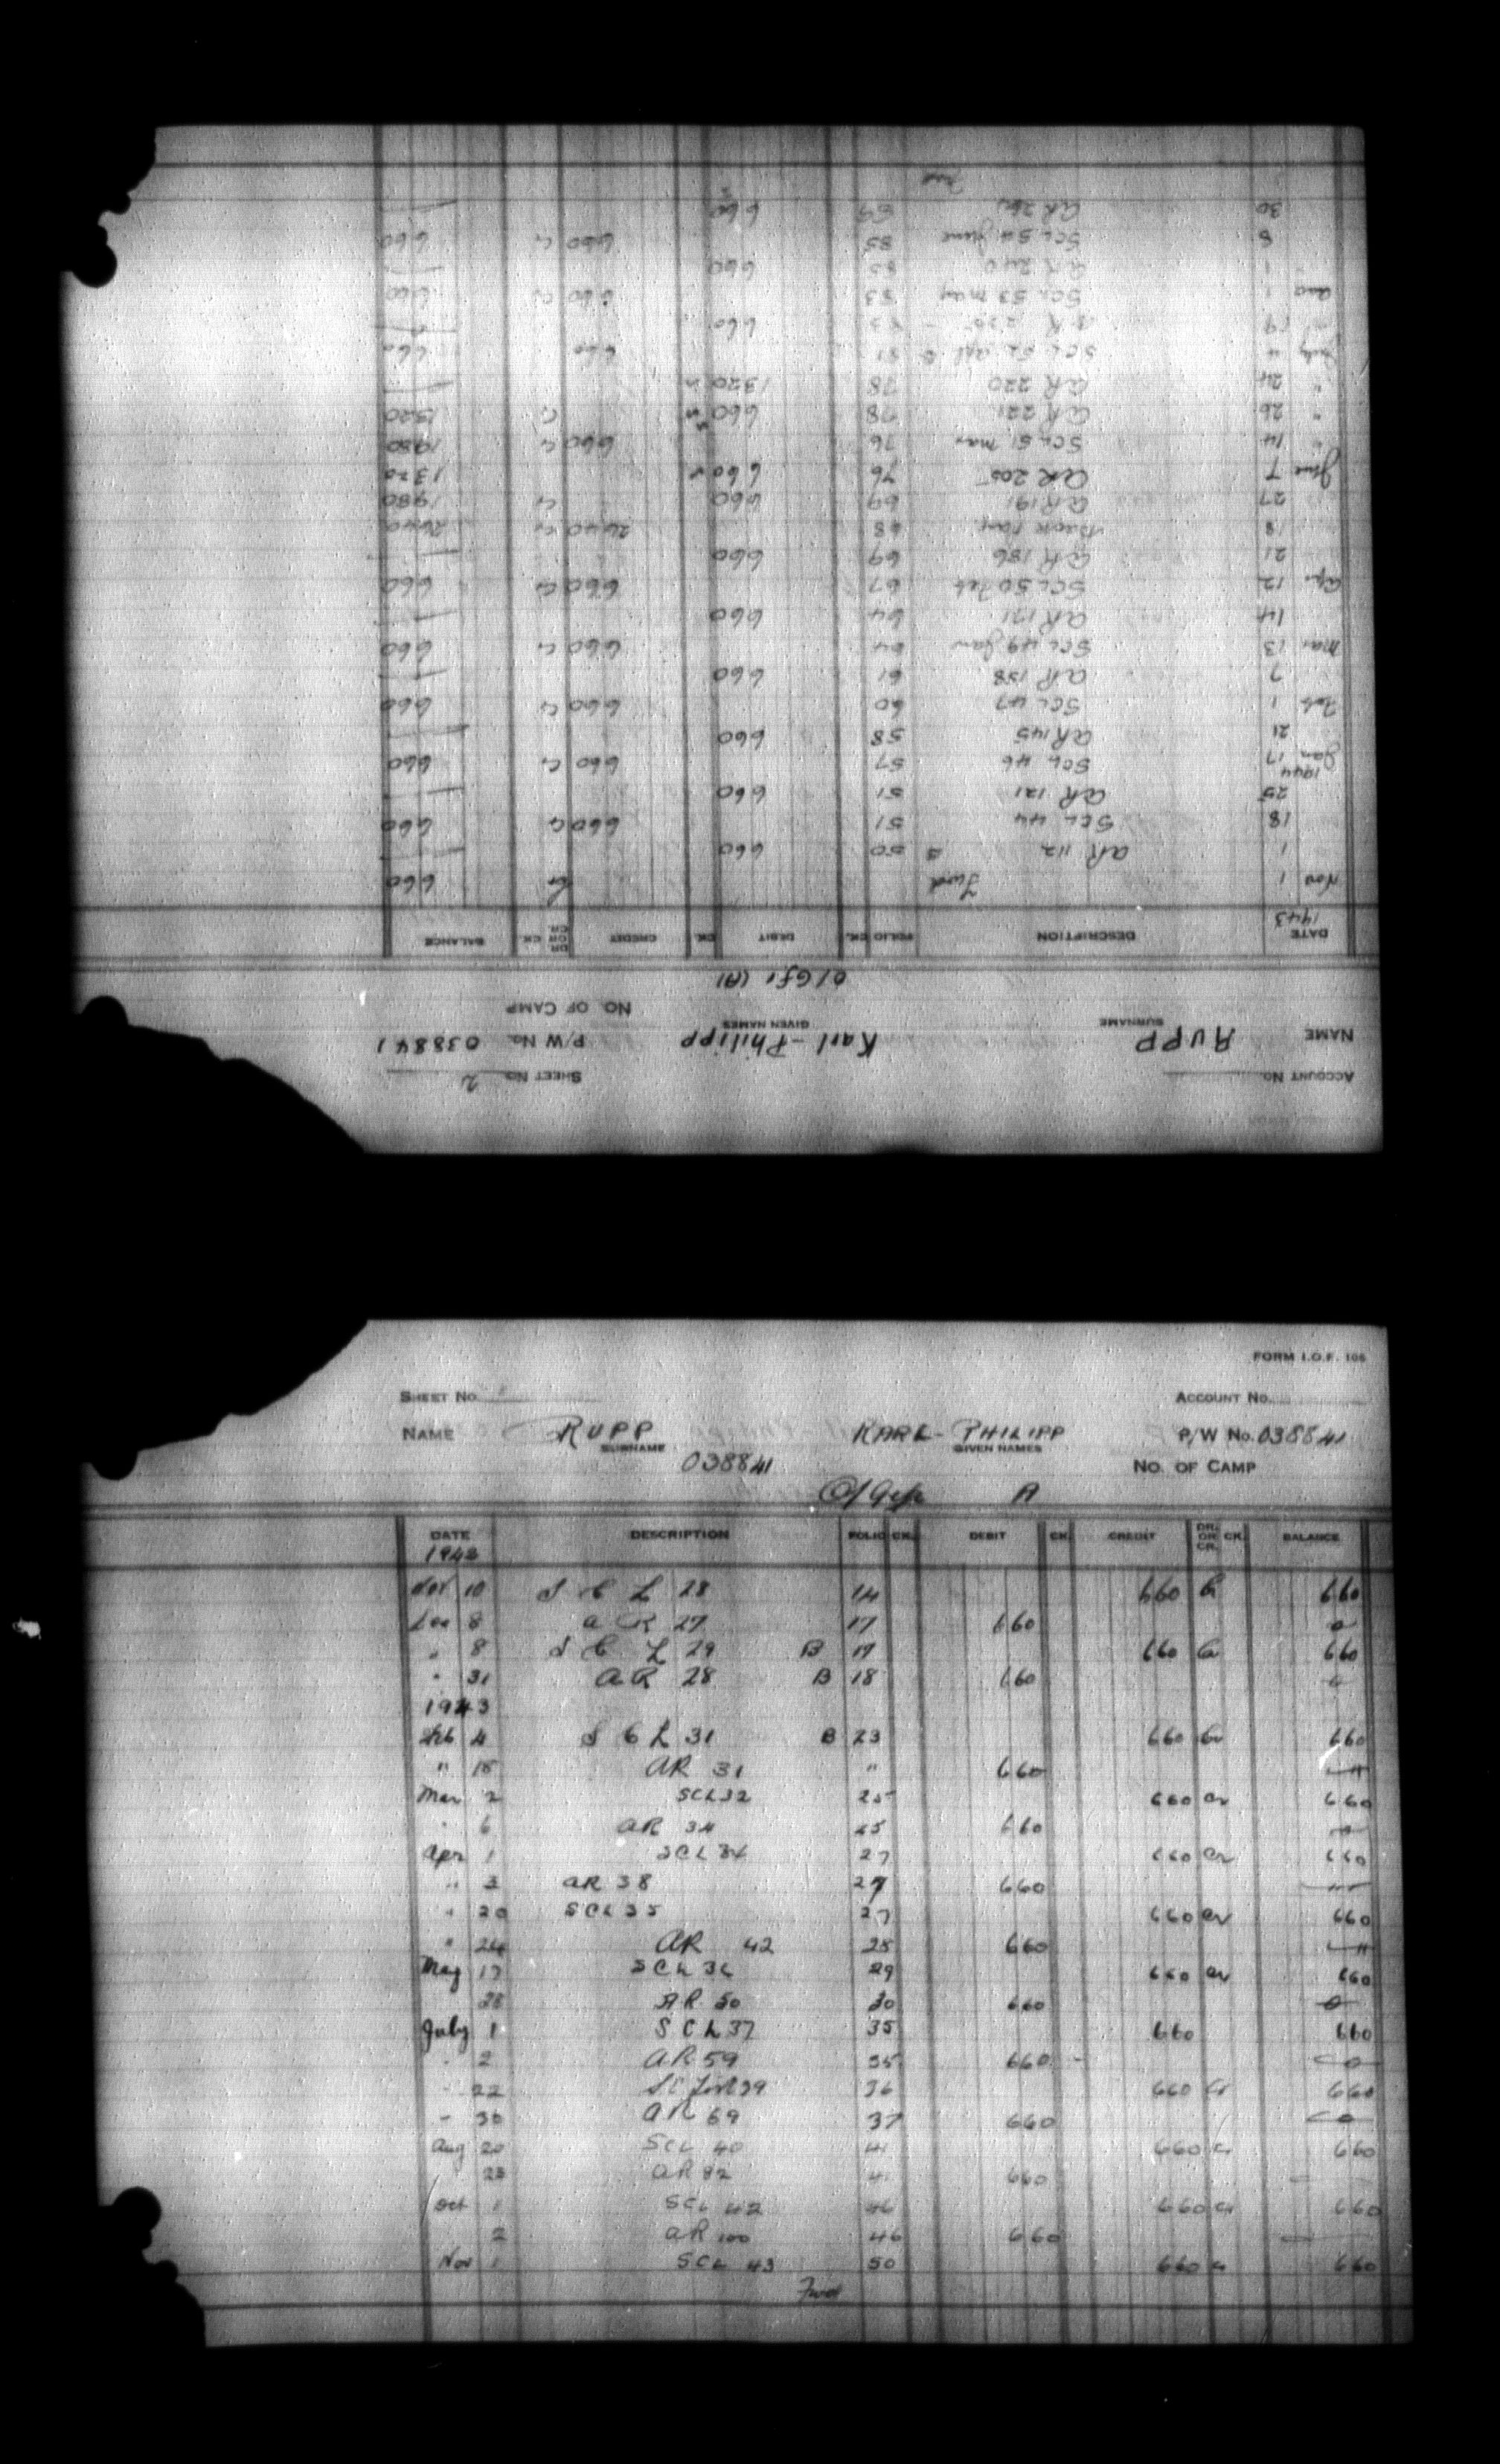 FORM I.O.F. 106
SHEET No. ACCOUNT No.
NAME RUPP KARL-PHILIPP P/W No. 038841
SURNAME GIVEN NAMES
038841 NO. OF CAMP
A
DATE DESCRIPTION FOLIO CK. DEBIT CK. CREDIT DR. OR CR. CK. BALANCE
1942
Nov 10 S C L 28 14 660 Cr 660
Dec 8 A R 27 17 660 0
" 8 S C L 29 B 17 660 Cr 660
" 31 A R 28 B 18 660 0
1943
Feb 4 S C L 31 B 23 660 Cr 660
" 15 AR 31 " 660
Mar 2 SCL 32 25 660 Cr 660
" 6 AR 34 25 660
Apr 1 SCL 34 27 660 Cr 660
" 3 AR 38 27 660
" 20 SCL 35 27 660 Cr 660
" 24 AR 42 28 660
May 17 SCL 36 29 660 Cr 660
28 AR 50 30 660 0
July 1 SCL 37 35 660 660
2 AR 59 35 660 - 0
22 39 36 660 Cr 660
30 AR 69 37 660 0
Aug 20 SCL 40 41 660 Cr 660
23 AR 82 41 660 —
Oct 1 SCL 42 46 660 Cr 660
2 AR 100 46 660 —
Nov 1 SCL 43 50 660 Cr 660
Fwd
ACCOUNT No. SHEET No. 2
NAME RUPP Karl-Philipp P/W No. 038841
SURNAME GIVEN NAMES NO. OF CAMP
O/Gfr (A)
DATE DESCRIPTION FOLIO CK. DEBIT CK. CREDIT DR. OR CR. CK. BALANCE
1943
Nov 1 Fwd Cr 660
1 AR 112 50 660 —
18 SCL 44 51 660 Cr 660
25 AR 121 51 660 —
1944
Jan 17 SCL 46 57 660 Cr 660
21 AR 145 58 660 —
Feb 1 SCL 47 60 660 Cr 660
7 AR 158 61 660 —
Mar 13 SCL 49 Jan 64 660 Cr 660
14 AR 171 64 660 —
Apr 12 SCL 50 Feb 67 660 Cr 660
21 AR 186 69 660 —
18 68 2640 Cr 2640
27 AR 191 69 660 Cr 1980
June 7 AR 205 76 660 1320
" 14 SCL 51 Mar 76 660 Cr 1980
" 26 AR 221 78 660 Cr 1320
" 24 AR 220 78 1320 —
July 4 SCL 52 Apl 81 660 660
19 AR 660 —
Aug 1 SCL 53 May 83 660 Cr 660
1 AR 240 85 660 —
8 SCL 54 June 85 660 Cr 660
30 AR 89 660 —
Fwd